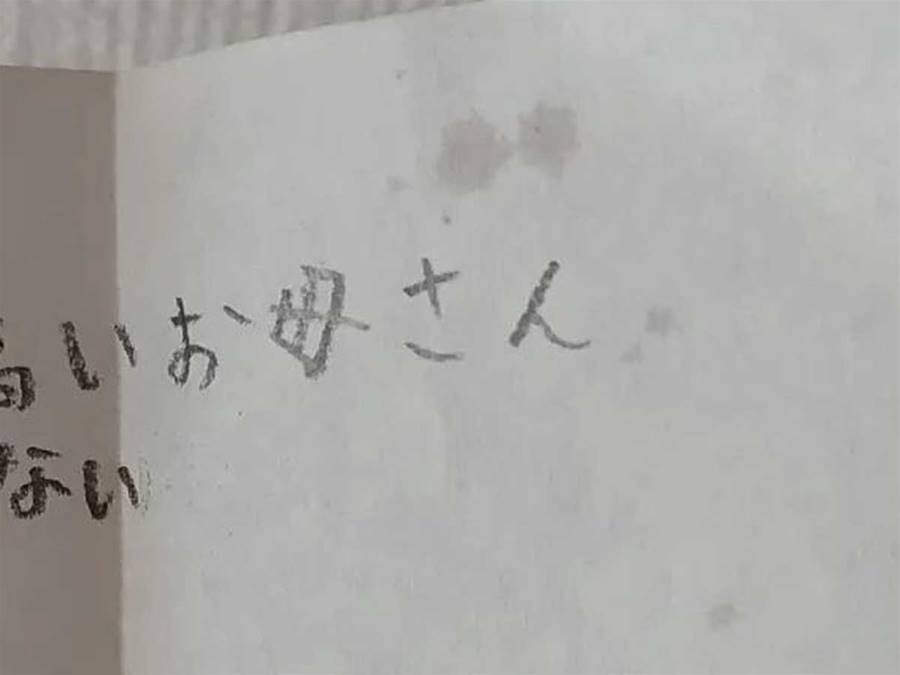 高いお母さん
ない